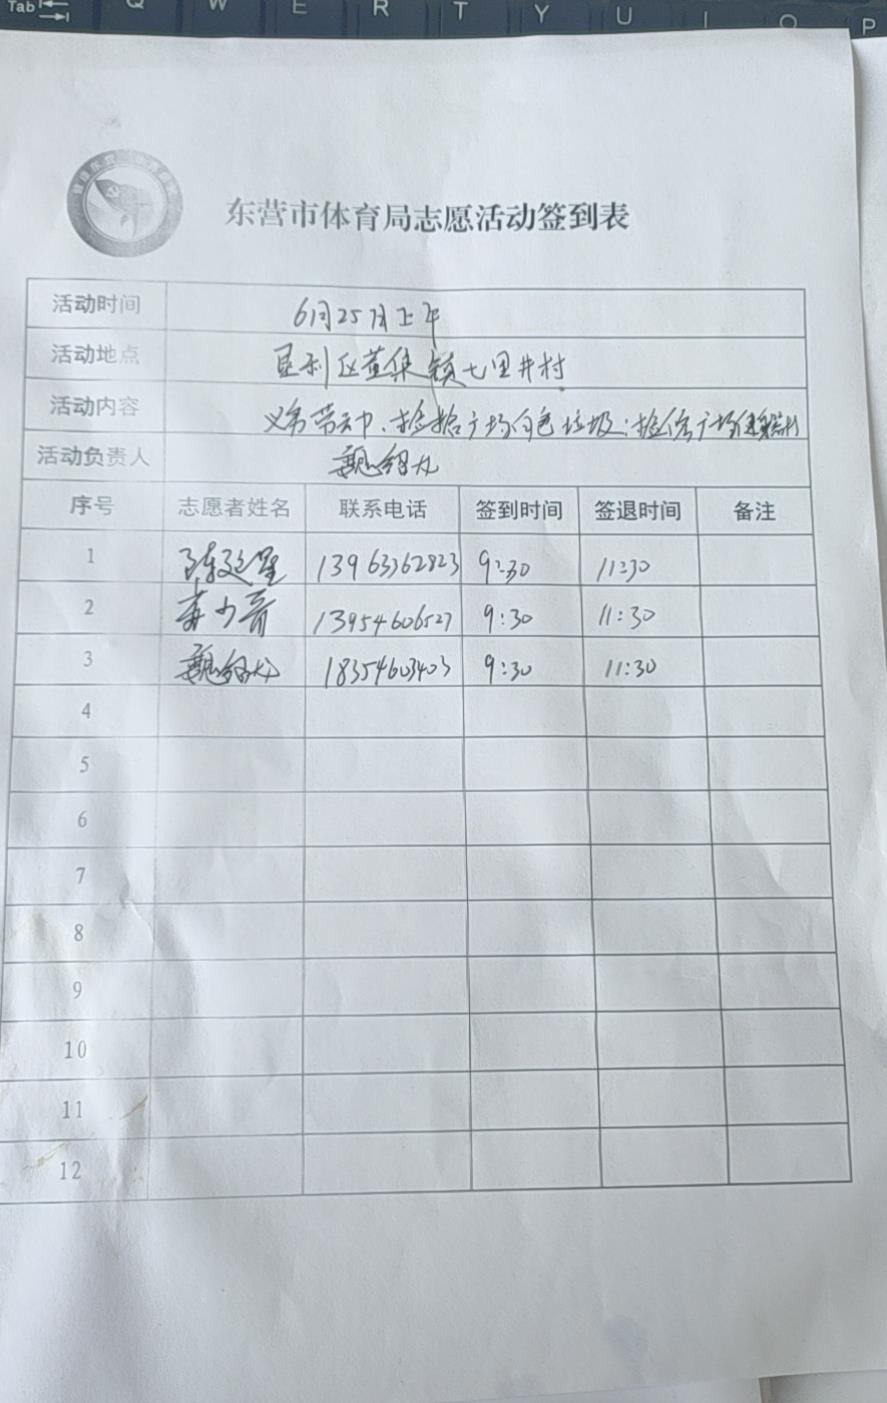 Tab Q W E R T Y U I O P
东营市体育局志愿活动签到表
活动时间 6月25日上午
活动地点 垦利区董集镇七里井村
活动内容 义务劳动、捡拾广场白色垃圾;检修广场健身器材
活动负责人
序号 志愿者姓名 联系电话 签到时间 签退时间 备注
1 13963362823 9:30 11:30
2 13954606527 9:30 11:30
3 18354603403 9:30 11:30
4
5
6
7
8
9
10
11
12